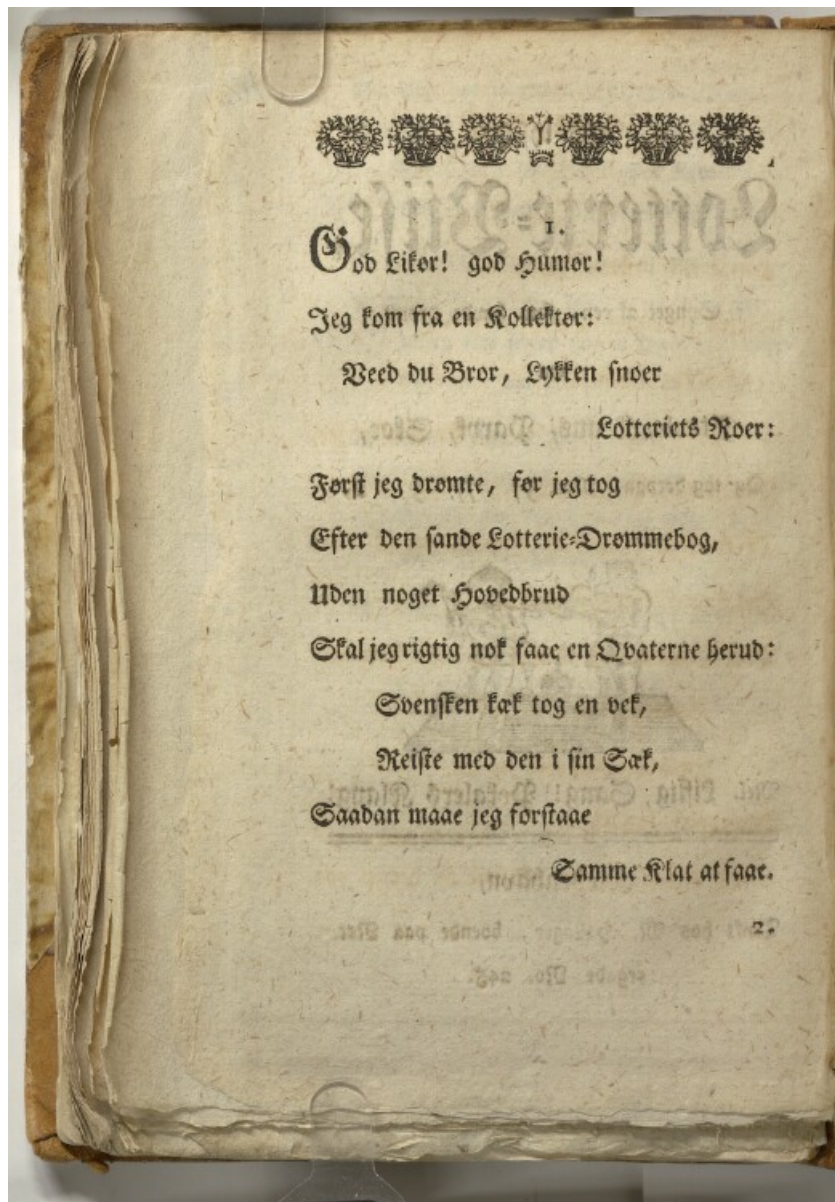 1.
God Likør! god Humør!
Jeg kom fra en Kollektør:
Veed du Bror, Lykken snoer
Lotteriets Roer:
Først jeg drømte, før jeg tog
Efter den sande Lotterie=Drømmebog,
Uden noget Hovedbrud
Skal jeg rigtig nok faae en Qvaterne herud:
Svensken kæk tog en vek,
Reiste med den i sin Sæk,
Saadan maae jeg forstaae
Samme Klat at faae.
2.